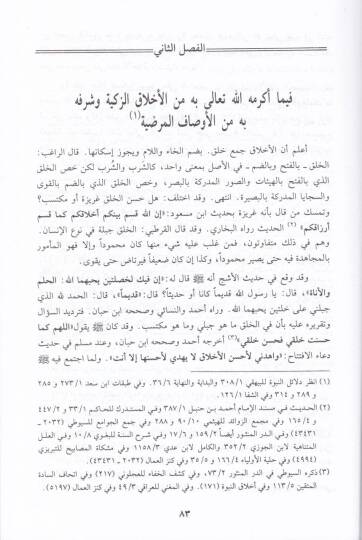 الفصل الثاني
فيما أكرمه الله تعالى به من الأخلاق الزكية وشرفه
به من الأوصاف المرضية(١)
أعلم أن الأخلاق جمع خلق. بضم الخاء واللام ويجوز إسكانها. قال الراغب:
الخلق ـ بالفتح وبالضم ـ في الأصل بمعنى واحد، كالشَرب والشُرب لكن خص الخلق
الذي بالفتح بالهيئات والصور المدركة بالبصر، وخص الخلق الذي بالضم بالقوى
والسجايا المدركة بالبصيرة. انتهى. وقد اختلف: هل حسن الخلق غريزة أو مكتسب؟
وتمسك من قال بأنه غريزة بحديث ابن مسعود: «إن الله قسم بينكم أخلاقكم كما قسم
أرزاقكم»(٢) الحديث رواه البخاري. وقد قال القرطبي: الخلق جبلة في نوع الإنسان.
وهم في ذلك متفاوتون، فمن غلب عليه شيء منها كان محموداً وإلا فهو المأمور
بالمجاهدة فيه حتى يصير محموداً، وكذا إن كان ضعيفاً فيرتاض حتى يقوى.
وقد وقع في حديث الأشج أنه ﷺ قال له: «إن فيك لخصلتين يحبهما الله: الحلم
والأناة»، قال: يا رسول الله قديماً كانا أو حديثاً؟ قال: «قديماً»، قال: الحمد لله الذي
جبلني على خلتين يحبهما الله. رواه أحمد والنسائي وصححه ابن حبان. فترديد السؤال
وتقريره عليه بأن في الخلق ما هو جبلي وما هو مكتسب. وقد كان ﷺ يقول «اللهم كما
حسنت خلقي فحسن خلقي»(٣) أخرجه أحمد وصححه ابن حبان، وعند مسلم في حديث
دعاء الافتتاح: «واهدني لأحسن الأخلاق لا يهدي لأحسنها إلا أنت». ولما اجتمع فيه ﷺ
(١) انظر دلائل النبوة للبيهقي ٣٠٨/١ والبداية والنهاية ٣٦/٦. وفي طبقات ابن سعد ٢٧٣/١ و ٢٨٥
و ٢٨٩ و ٣١٤ وفي الشفا ١٢٦/١.
(٢) الحديث في مسند الإمام أحمد بن حنبل ٣٨٧/١ وفي المستدرك للحاكم ٣٣/١ و ٤٤٧/٢
و ١٦٥/٤ وفي مجمع الزوائد للهيثمي ٩٠/١٠ و ٢٨٨ وفي جمع الجوامع للسيوطي (٢٠٣٢ ـ
٤٣٤٣١) وفي الدر المنثور أيضاً ١٥٩/٢ و ١٧/٦ وفي شرح السنة للبغوي ١٠/٨ وفي العلل
المتناهية لابن الجوزي ٣٥٢/٢ والكامل لابن عدي ١١٥٨/٣ وفي مشكاة المصابيح للتبريزي
(٤٩٩٤) وفي حلية الأولياء ١٦٦/٤ و ٣٥/٥ وفي كنز العمال (٢٠٣٢ ـ ٤٣٤٣١).
(٣) ذكره السيوطي في الدر المنثور ٧٣/٢، وفي كشف الخفاء للعجلوني (٢١٧) وفي اتحاف السادة
المتقين ١١٣/٥ وفي أخلاق النبوة (١٧١). وفي المغني للعراقي ٤٩/٣ وفي كنز العمال (٥١٩٧)
٨٣